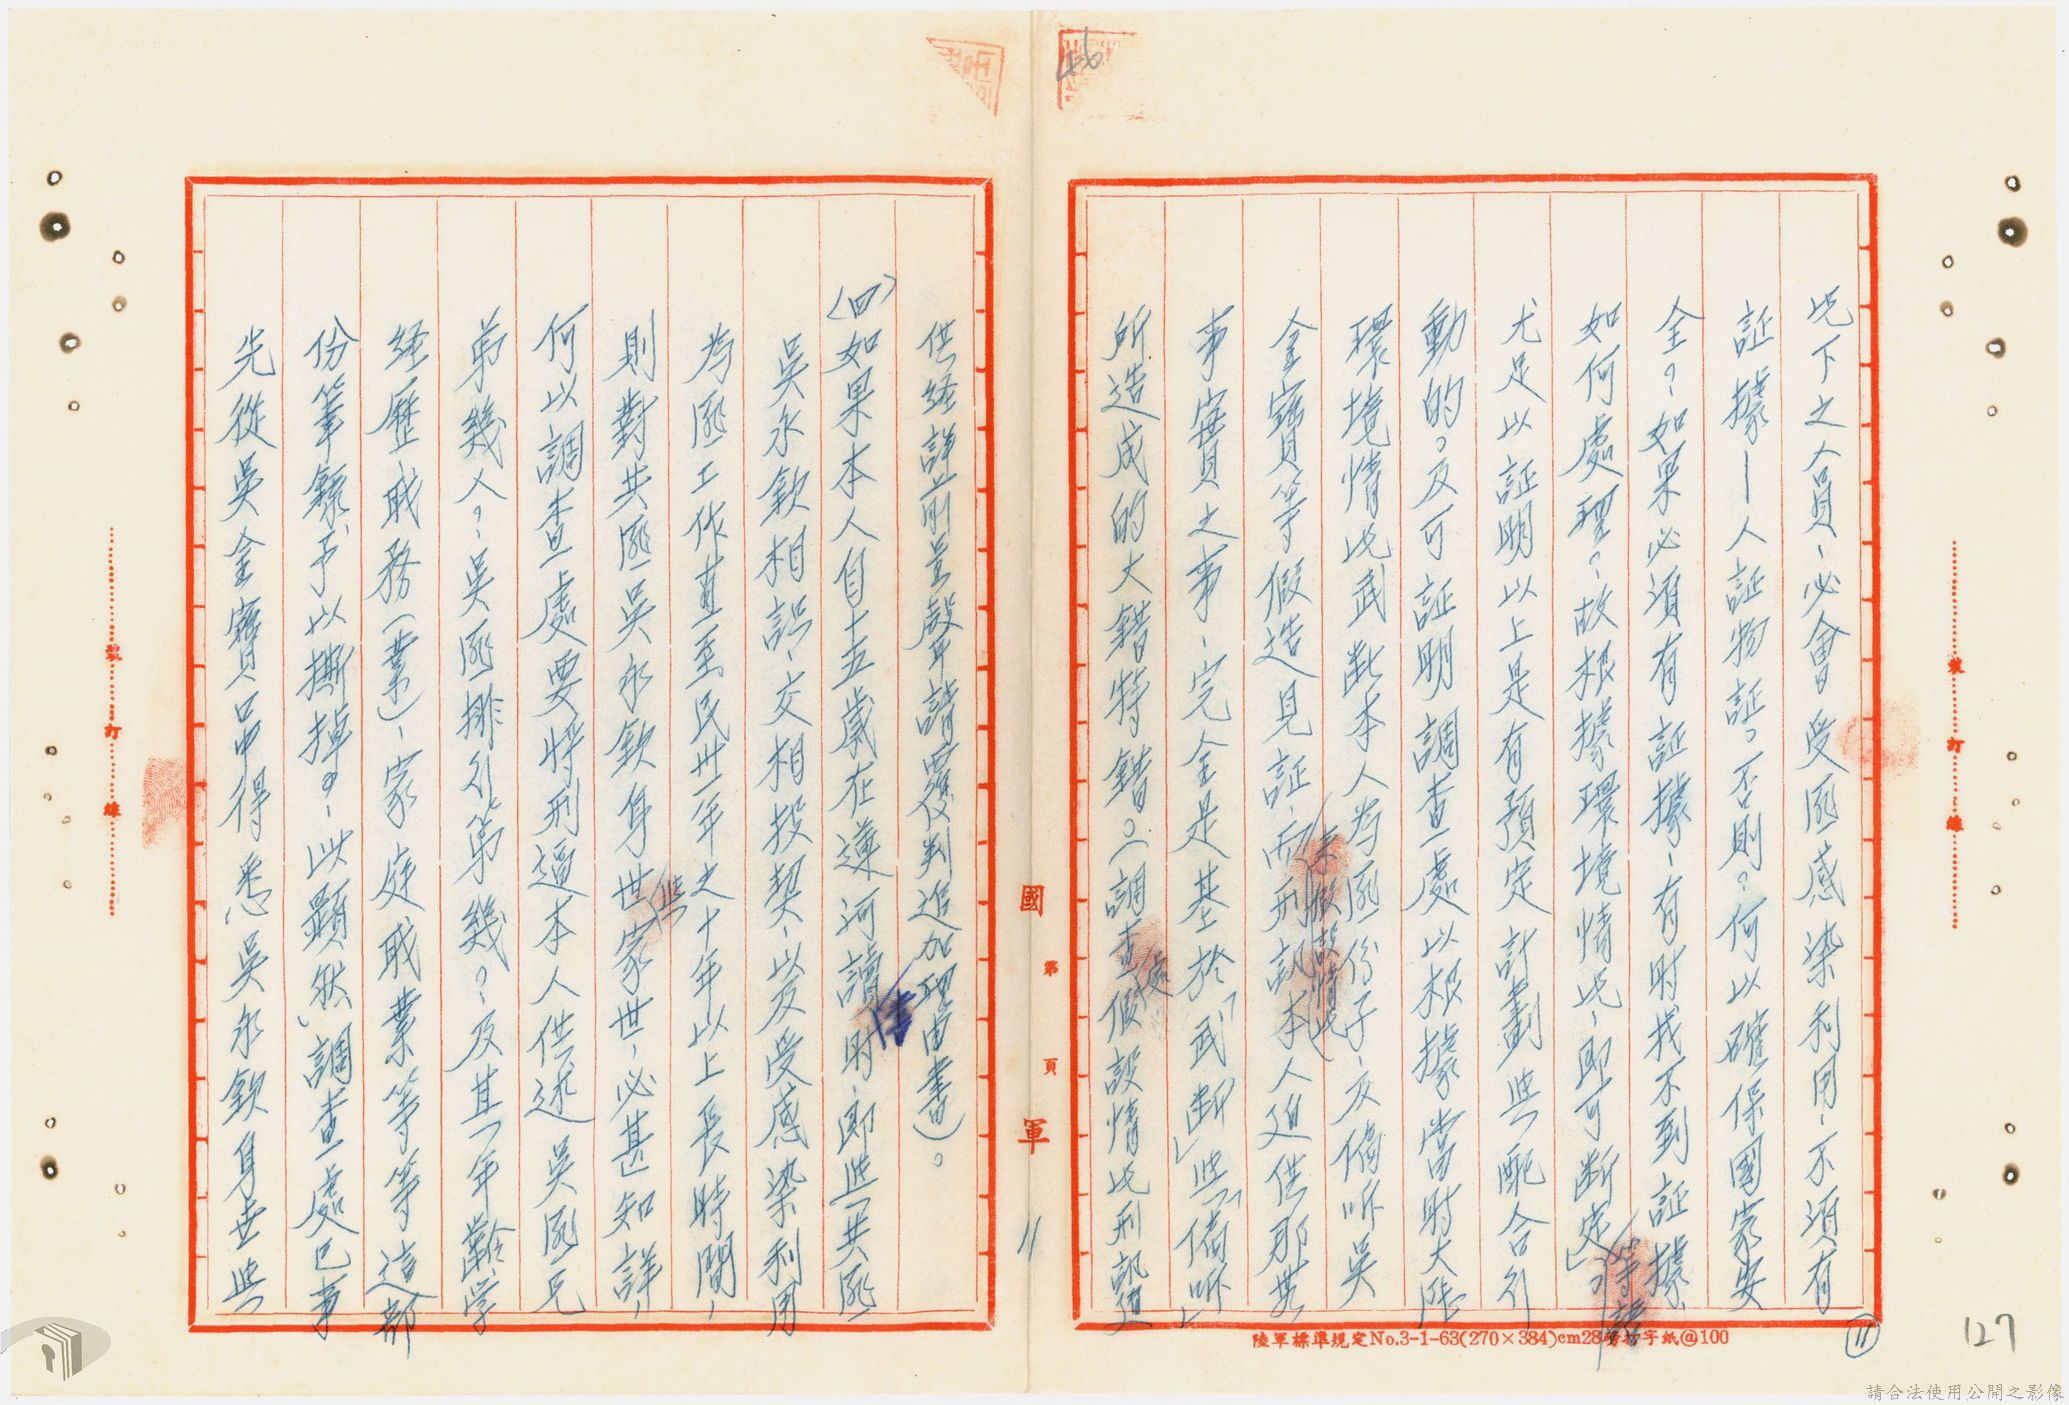 此下之人員、必會受匪感染利用、不須有
証據—人証物証。否則？何以確保國家安
全？如果必須有証據、有時找不到証據
如何處理？故根據環境情此、即可斷定」等語
尤足以証明以上是有預定計劃與配合行
動的。及可証明調查處以根據當時大陸
環境情此武斷本人為匪份子、及偽咋吳
金寶等假造見証、而刑訊本人迫供那些
來假設情此
事實之事、完全是基於「武斷」與「偽咋」
所造成的大錯特錯。（調查處假設情此刑訊迫
供経詳前呈聲請覆判追加理由書）。
(四)如果本人自十五歲在蓮河讀書時、即與共匪
吳永欽相識、交相投契、以及受感染利用
為匪工作直至民卅一年之十年以上長時間、
則對共匪吳永欽身世與家世、必甚知詳、
何以調查處要將刑逼本人供述吳匪兄
弟幾人？吳匪排行第幾？及其年齡学
経歷戝務(業)、家庭戝業等等這部
份筆錄予以撕掉？、以顯然調查處已事
先從吳金寶口中得悉吳永欽身世與
國 軍
第 頁
11
裝 訂 線
裝 訂 線
陸軍標準規定No.3-1-63(270×384)cm28 字紙@100
11
127
46
請合法使用公開之影像